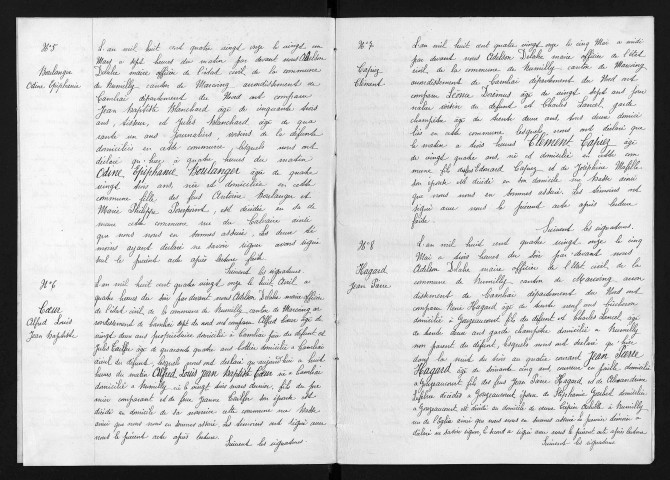 N°5
Boulanger
Odine Epiphanie
L'an mil huit cent quatre vingt onze le vingt un
Mars à sept heures du matin par devant nous Adihlon
Delahe maire officier de l'état civil, de la commune
de Rumilly canton de Marcoing arrondissement de
Cambrai département du Nord ont comparu
Jean Baptiste Blanchard âgé de cinquante trois
ans, tisseur, et Jules Blanchard âgé de qua
rante un ans, journaliers, voisins de la défunte
domiciliés en cette commune, lesquels nous ont
déclaré qu'hier à quatre heures du matin
Odine Epiphanie Boulanger âgée de quatre
vingt trois ans, née et domiciliée en cette
commune fille des feus Antoine Boulanger et
Marie Philippe, est décédée en sa de
meure cette commune rue du Calvaire ainsi
que nous nous en sommes assuré. Les deux té
moins ayant déclaré ne savoir signer avons signé
seul le présent acte après lecture faite
Suivent les signatures.
N°6
Cœur
Alfred Louis
Jean Baptiste
L'an mil huit cent quatre vingt onze le huit Avril à
quatre heures du soir par devant nous Adihlon Delahe maire officier
de l'état civil, de la commune de Rumilly, canton de Marcoing ar
rondissement de Cambrai dépt du nord ont comparu Alfred Cœur âgé de
vingt deux ans domicilié à Cambrai père du défunt et
Jules âgé de quarante quatre ans domicilié à Cambrai
du défunt, lesquels nous ont déclaré qu'aujourd'hui à huit
heures du matin Alfred Louis Jean Baptiste Cœur né à Cambrai
domicilié à Rumilly né le vingt trois mars dernier, fils du pre
mier comparant et de Jeanne son épouse est
décédé en domicile de sa nourrice cette commune rue Basse
ainsi que nous nous en sommes assuré. Les témoins ont signé avec
nous le présent acte après lecture.
Suivent les signatures.
N°7
Capez
Clément
L'an mil huit cent quatre vingt onze le cinq Mai à midi
par devant nous Adihlon Delahe maire officier de l'état
civil, de la commune de Rumilly canton de Marcoing
arrondissement de Cambrai département du Nord ont
comparu âgé de vingt sept ans jour
nalier voisin du défunt et Charles Lancel, garde
champêtre âgé de trente deux ans tous deux domici
liés en cette commune lesquels nous ont déclaré que
le matin à trois heures Clément Capez âgé
de vingt quatre ans, né et domicilié en cette com
mune fils des Edouard Capez et de Joséphine
son épouse est décédé en son domicile rue Basse ainsi
que nous nous en sommes assuré. Les témoins ont
signé avec nous le présent acte après lecture
faite
Suivent les signatures.
N°8
Hagard
Jean Pierre
L'an mil huit cent quatre vingt onze le cinq
Mai à trois heures du soir par devant nous
Adihlon Delahe maire officier de l'état civil, de la
commune de Rumilly canton de Marcoing arron
dissement de Cambrai département du Nord ont
comparu Hagard âgé de trente neuf ans bûcheron
domicilié à Gouzeaucourt, fils du défunt et Charles Lancel âgé
de trente deux ans garde champêtre domicilié à Rumilly
non parent du défunt, lesquels nous ont déclaré qu'hier
Jean Pierre
Hagard âgé de soixante cinq ans domicilié
à Gouzeaucourt fils des feus Jean Pierre Hagard et de Alexandrine
décédés à Gouzeaucourt, époux de Stéphanie domiciliée
à Gouzeaucourt, est décédé en domicile de à Rumilly
rue de l'Eglise ainsi que nous nous en sommes assuré le premier témoin a
déclaré ne savoir signer, le second a signé avec nous le présent acte après lecture.
Suivent les signatures